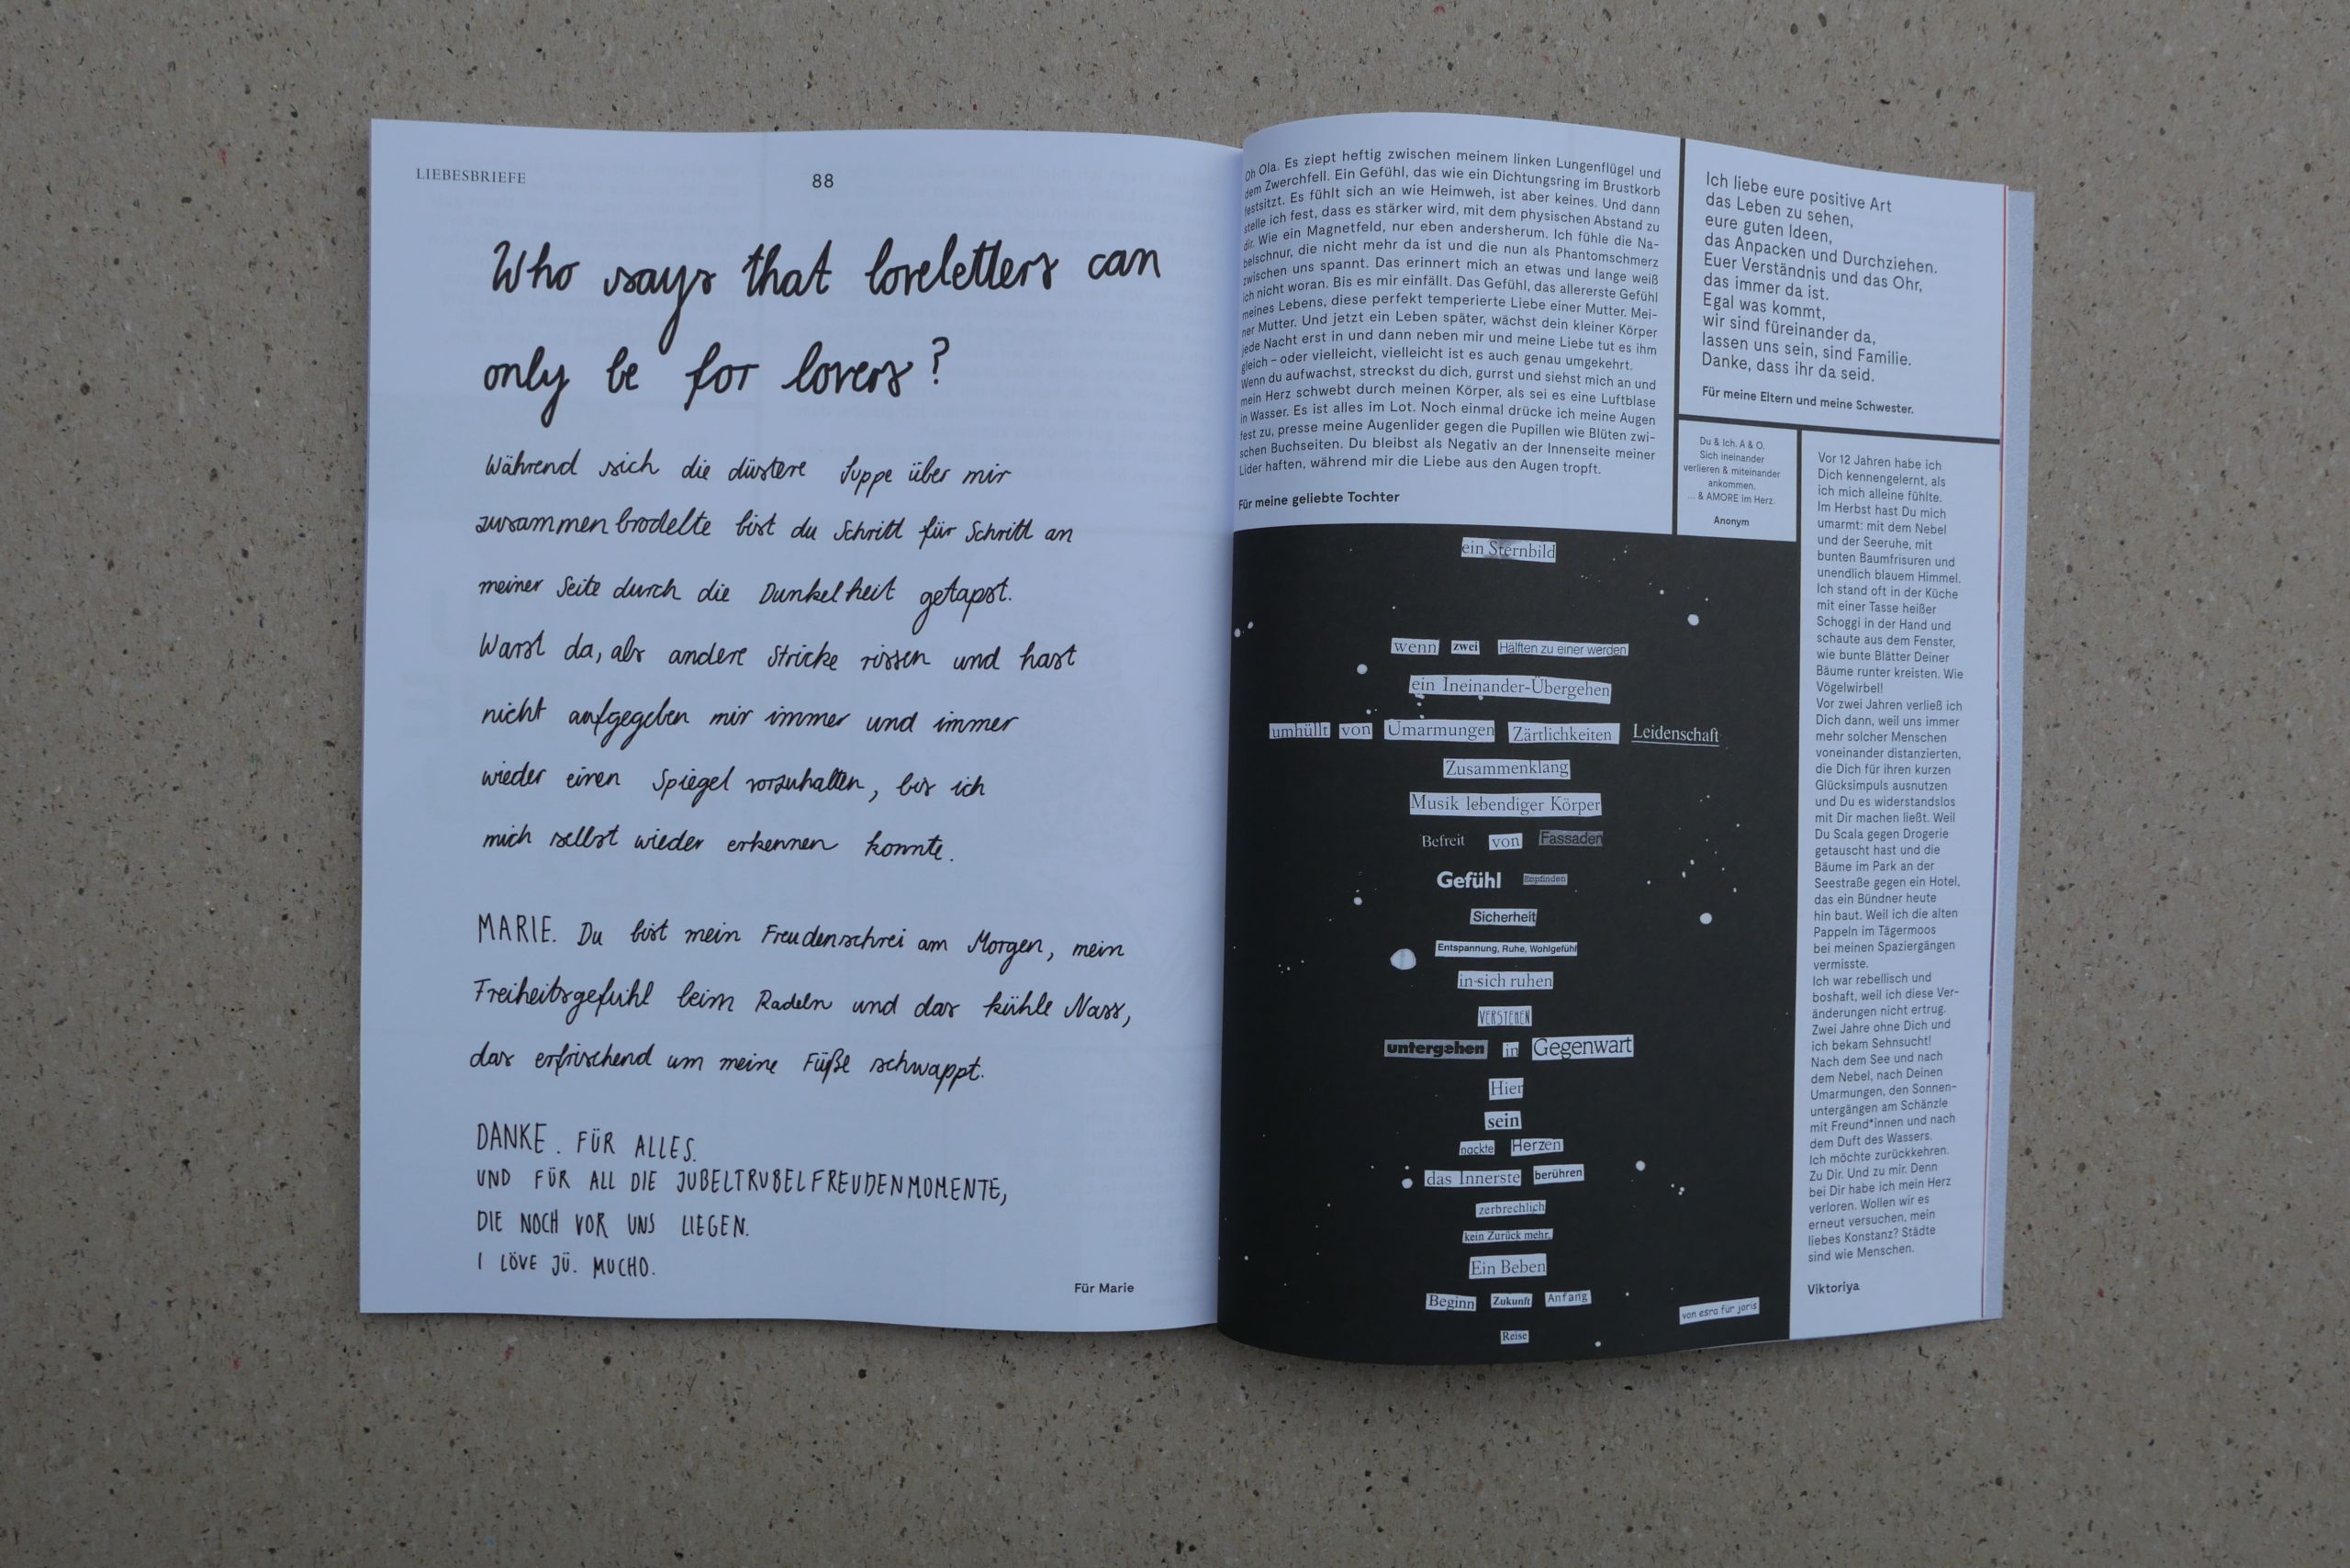 LIEBESBRIEFE
88
Who says that loveletters can
only be for lovers?
Während sich die düstere Suppe über mir
zusammenbrodelte bist du Schritt für Schritt an
meiner Seite durch die Dunkelheit getapst.
Warst da, als andere Stricke rissen und hast
nicht aufgegeben mir immer und immer
wieder einen Spiegel vorzuhalten, bis ich
mich selbst wieder erkennen konnte.
MARIE. Du bist mein Freudenschrei am Morgen, mein
Freiheitsgefühl beim Radeln und das kühle Nass,
das erfrischend um meine Füße schwappt.
DANKE. FÜR ALLES.
UND FÜR ALL DIE JUBELTRUBELFREUDENMOMENTE,
DIE NOCH VOR UNS LIEGEN.
I LÖVE JÜ. MUCHO.
Für Marie
Oh Ola. Es ziept heftig zwischen meinem linken Lungenflügel und
dem Zwerchfell. Ein Gefühl, das wie ein Dichtungsring im Brustkorb
festsitzt. Es fühlt sich an wie Heimweh, ist aber keines. Und dann
stelle ich fest, dass es stärker wird, mit dem physischen Abstand zu
dir. Wie ein Magnetfeld, nur eben andersherum. Ich fühle die Na-
belschnur, die nicht mehr da ist und die nun als Phantomschmerz
zwischen uns spannt. Das erinnert mich an etwas und lange weiß
ich nicht woran. Bis es mir einfällt. Das Gefühl, das allererste Gefühl
meines Lebens, diese perfekt temperierte Liebe einer Mutter. Mei-
ner Mutter. Und jetzt ein Leben später, wächst dein kleiner Körper
jede Nacht erst in und dann neben mir und meine Liebe tut es ihm
gleich – oder vielleicht, vielleicht ist es auch genau umgekehrt.
Wenn du aufwachst, streckst du dich, gurrst und siehst mich an und
mein Herz schwebt durch meinen Körper, als sei es eine Luftblase
in Wasser. Es ist alles im Lot. Noch einmal drücke ich meine Augen
fest zu, presse meine Augenlider gegen die Pupillen wie Blüten zwi-
schen Buchseiten. Du bleibst als Negativ an der Innenseite meiner
Lider haften, während mir die Liebe aus den Augen tropft.
Für meine geliebte Tochter
Ich liebe eure positive Art
das Leben zu sehen,
eure guten Ideen,
das Anpacken und Durchziehen.
Euer Verständnis und das Ohr,
das immer da ist.
Egal was kommt,
wir sind füreinander da,
lassen uns sein, sind Familie.
Danke, dass ihr da seid.
Für meine Eltern und meine Schwester.
Du & Ich. A & O.
Sich ineinander
verlieren & miteinander
ankommen.
... & AMORE im Herz.
Anonym
ein Sternbild
wenn zwei Hälften zu einer werden
ein Ineinander-Übergehen
umhüllt von Umarmungen Zärtlichkeiten Leidenschaft
Zusammenklang
Musik lebendiger Körper
Befreit von Fassaden
Gefühl Empfinden
Sicherheit
Entspannung, Ruhe, Wohlgefühl
in-sich ruhen
VERSTEHEN
untergehen in Gegenwart
Hier
sein
nackte Herzen
das Innerste berühren
zerbrechlich
kein Zurück mehr.
Ein Beben
Beginn Zukunft Anfang
Reise
von esra für joris
Vor 12 Jahren habe ich
Dich kennengelernt, als
ich mich alleine fühlte.
Im Herbst hast Du mich
umarmt: mit dem Nebel
und der Seeruhe, mit
bunten Baumfrisuren und
unendlich blauem Himmel.
Ich stand oft in der Küche
mit einer Tasse heißer
Schoggi in der Hand und
schaute aus dem Fenster,
wie bunte Blätter Deiner
Bäume runter kreisten. Wie
Vögelwirbel!
Vor zwei Jahren verließ ich
Dich dann, weil uns immer
mehr solcher Menschen
voneinander distanzierten,
die Dich für ihren kurzen
Glücksimpuls ausnutzen
und Du es widerstandslos
mit Dir machen ließt. Weil
Du Scala gegen Drogerie
getauscht hast und die
Bäume im Park an der
Seestraße gegen ein Hotel,
das ein Bündner heute
hin baut. Weil ich die alten
Pappeln im Tägermoos
bei meinen Spaziergängen
vermisste.
Ich war rebellisch und
boshaft, weil ich diese Ver-
änderungen nicht ertrug.
Zwei Jahre ohne Dich und
ich bekam Sehnsucht!
Nach dem See und nach
dem Nebel, nach Deinen
Umarmungen, den Sonnen-
untergängen am Schänzle
mit Freund*innen und nach
dem Duft des Wassers.
Ich möchte zurückkehren.
Zu Dir. Und zu mir. Denn
bei Dir habe ich mein Herz
verloren. Wollen wir es
erneut versuchen, mein
liebes Konstanz? Städte
sind wie Menschen.
Viktoriya